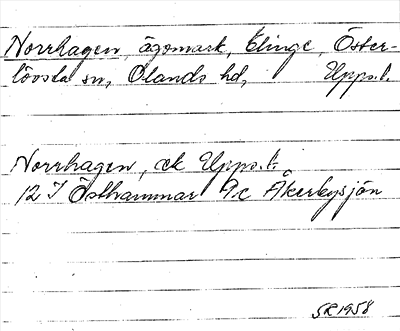 Norrhagen, ägomark, Elinge, Öster-
lövsta sn, Olands hd, Upps.l.
Norrhagen, ek Upps.l.
12 I Östhammar 9c Åkerbysjön
SR 1958